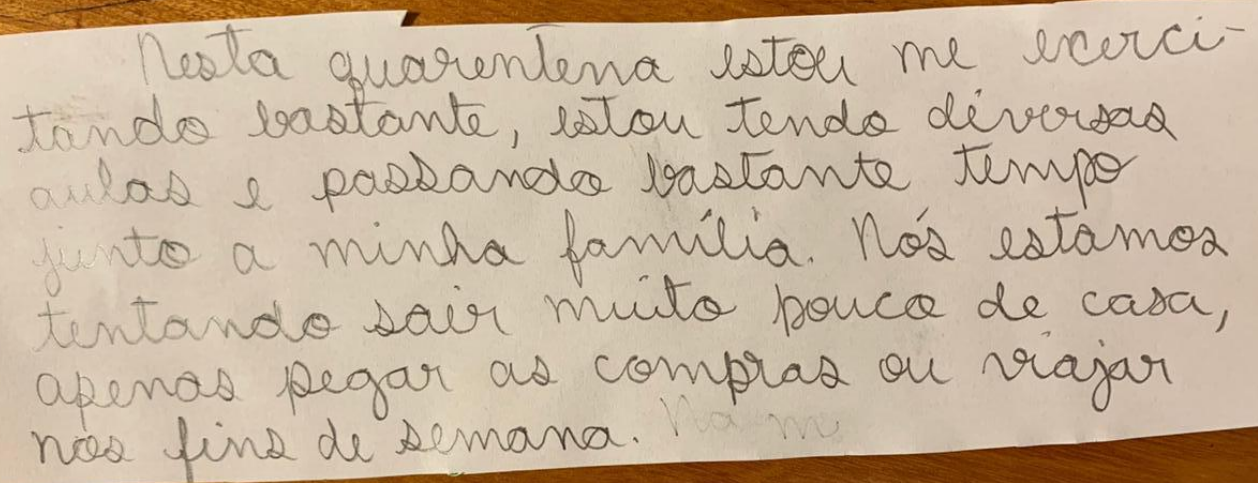 Nesta quarentena estou me exerci-
tando bastante, estou tendo diversas
aulas e passando bastante tempo
junto a minha família. Nós estamos
tentando sair muito pouco de casa,
apenas pegar as compras ou viajar
nos fins de semana. Na m